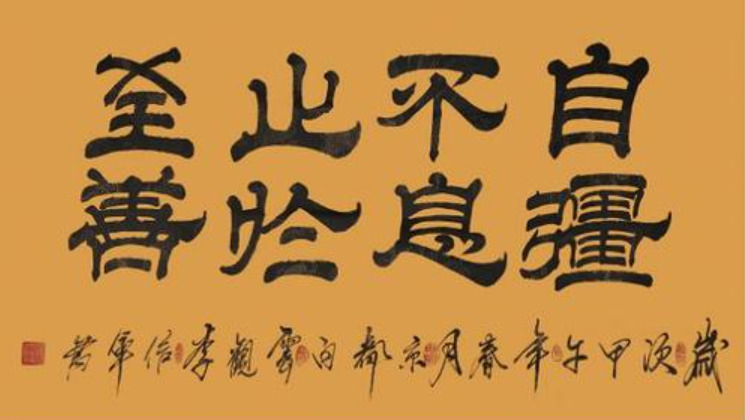 自彊
不息
止於
至善
歲次甲午年春月京都白雲觀李信軍書